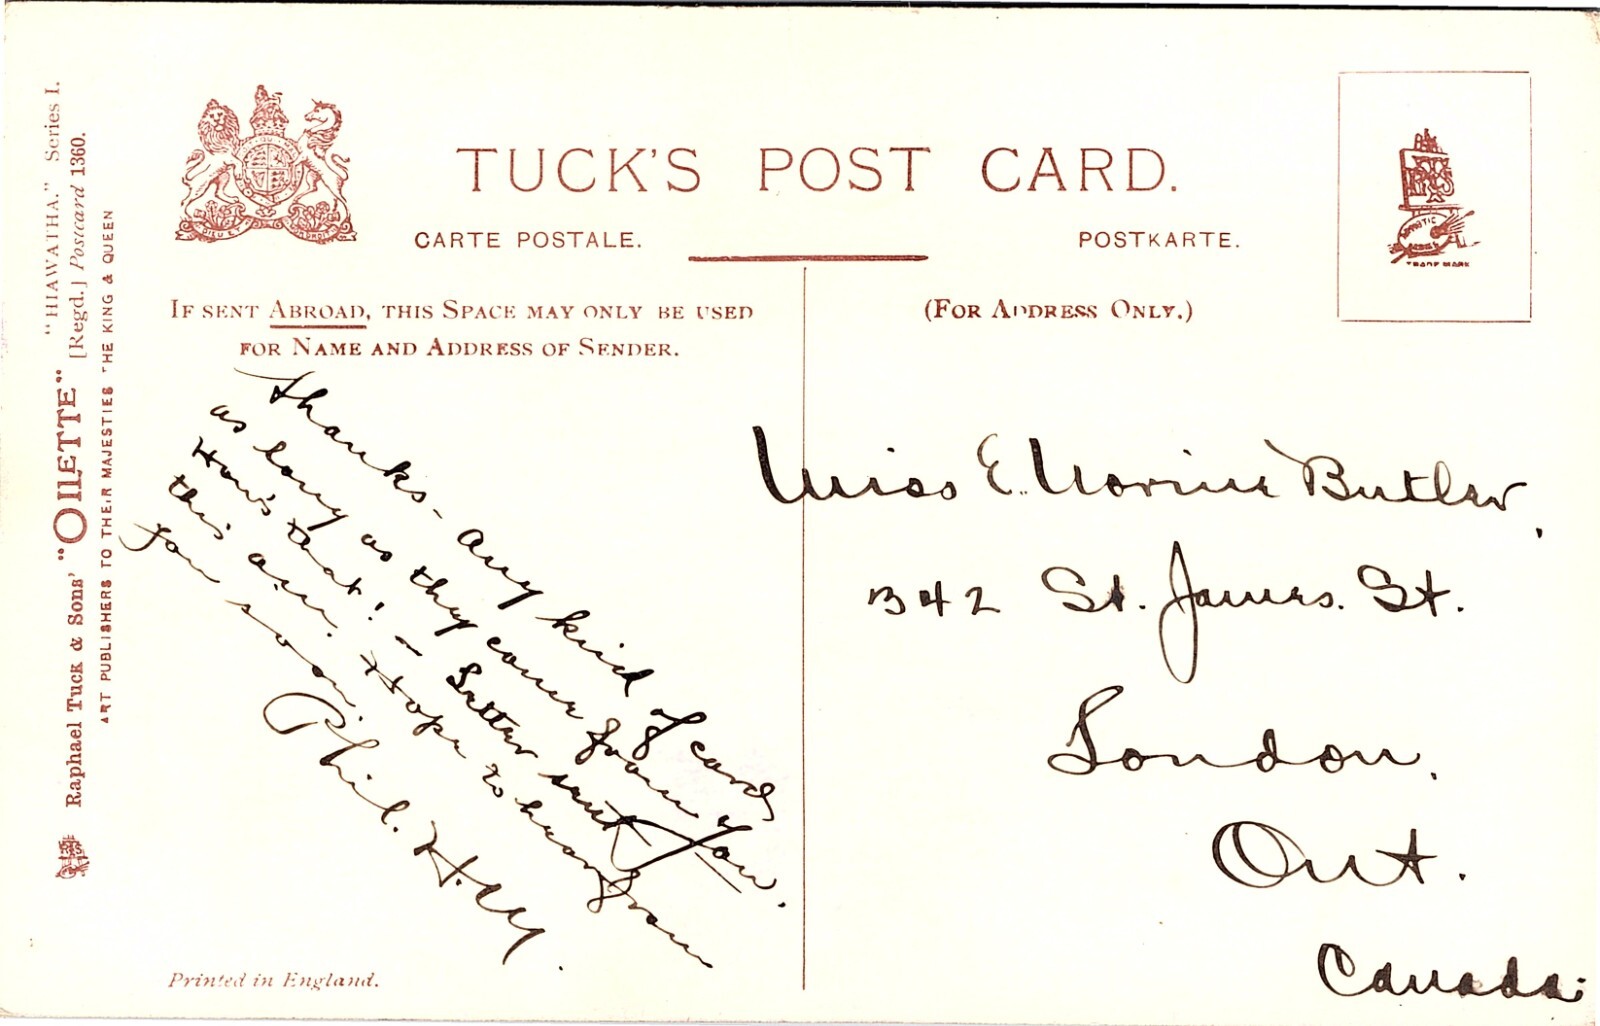 TUCK'S POST CARD.
CARTE POSTALE.
POSTKARTE.
IF SENT ABROAD, THIS SPACE MAY ONLY BE USED
FOR NAME AND ADDRESS OF SENDER.
(FOR ADDRESS ONLY.)
"HIAWATHA." Series I.
Raphael Tuck & Sons' "OILETTE" [Regd.] Postcard 1360.
ART PUBLISHERS TO THEIR MAJESTIES THE KING & QUEEN
Thanks - Any kind of cards
as long as they come from you.
How's that! - Letter sent
this a.m. Hope to hear from
you soon.
Phil. H.
Miss E. Norine Butler,
342 St. James. St.
London.
Ont.
Canada.
Printed in England.
TRADE MARK